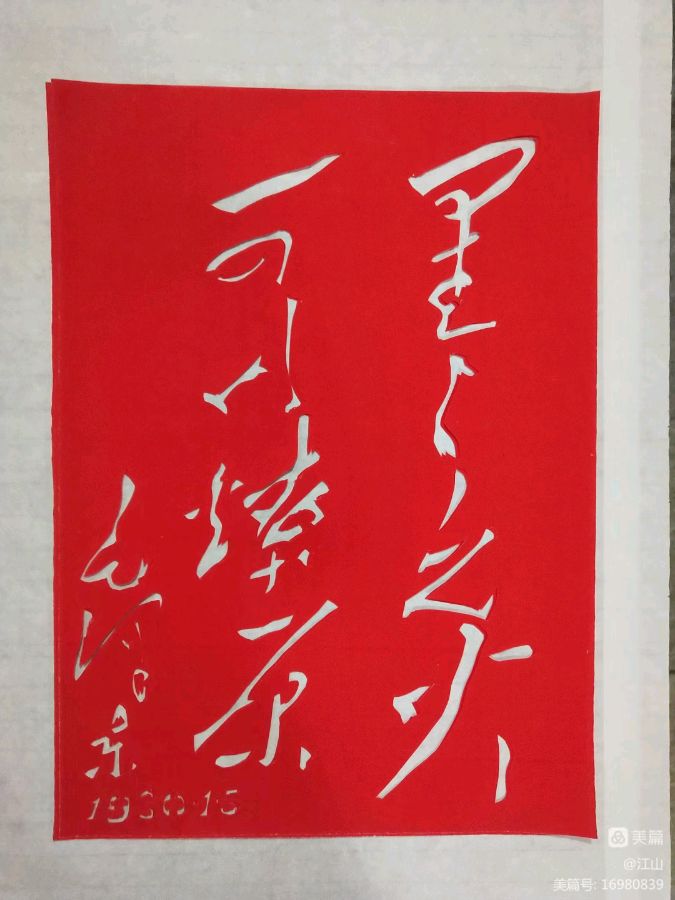 星々之火
可以燎原
毛泽东
1930·15
美篇
@江山
美篇号: 16980839